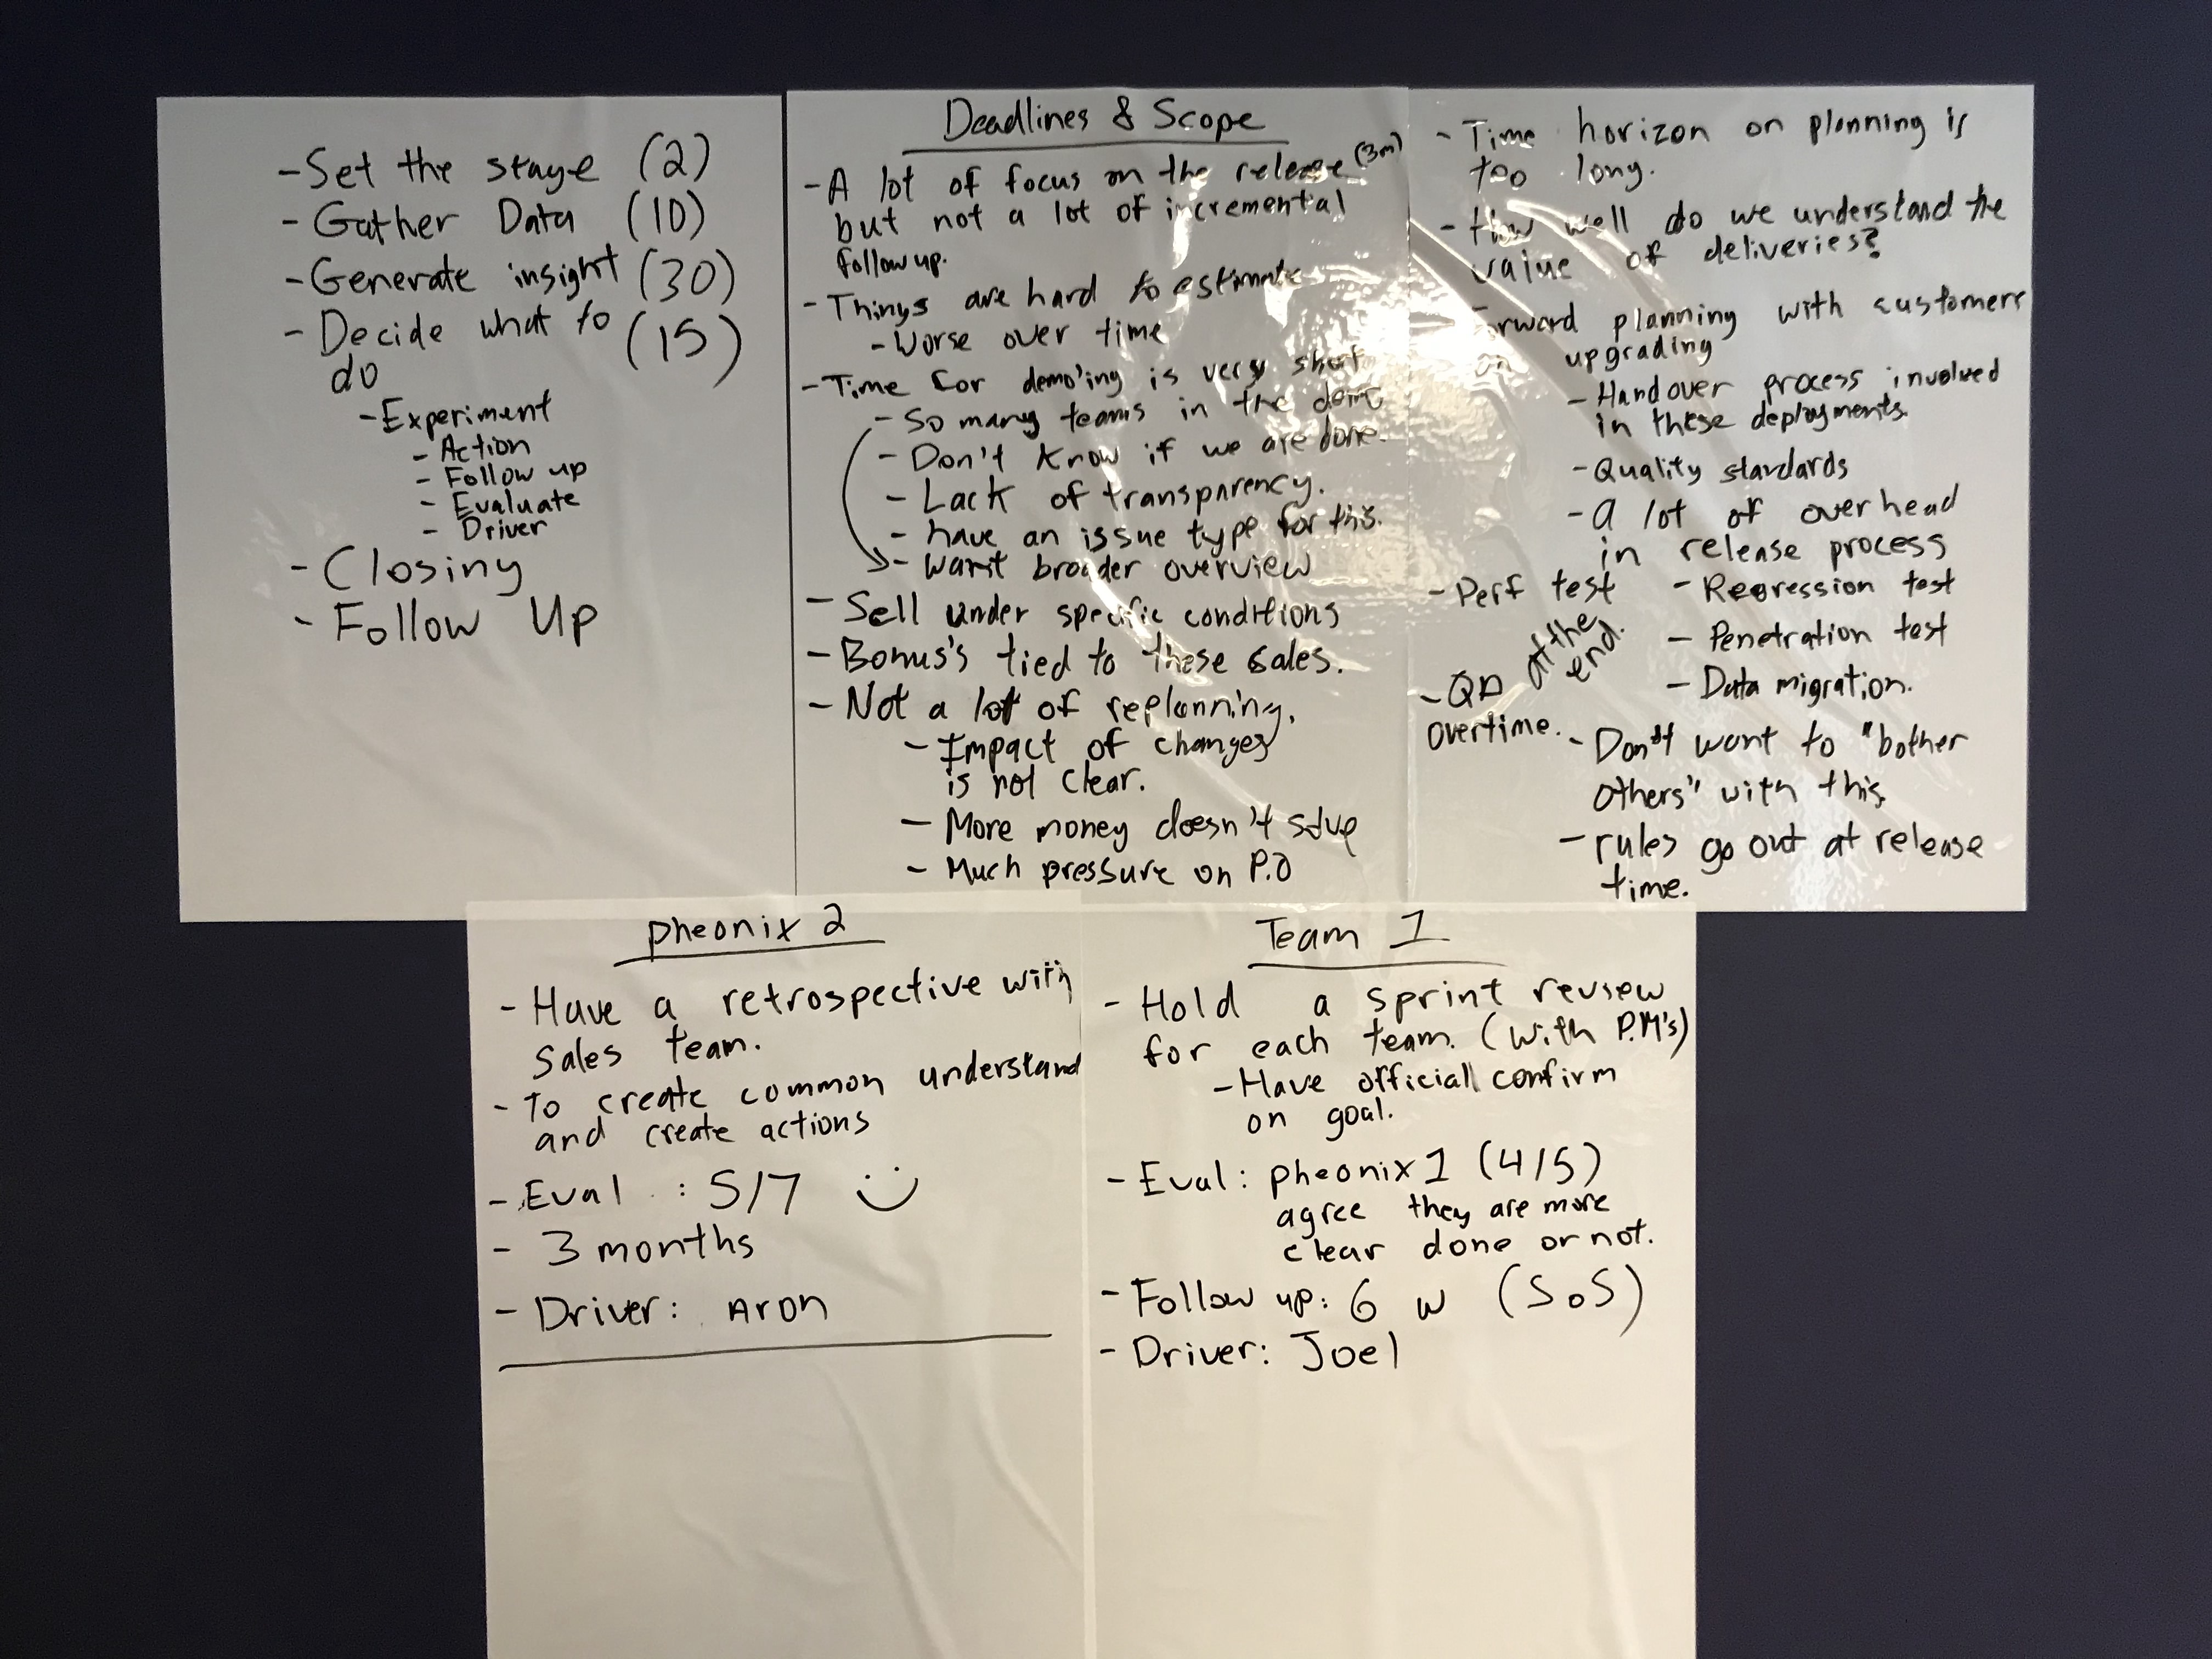 - Set the stage (2)
- Gather Data (10)
- Generate insight (30)
- Decide what to (15)
do
- Experiment
- Action
- Follow up
- Evaluate
- Driver
- Closing
- Follow Up
Deadlines & Scope
- A lot of focus on the release (3m)
but not a lot of incremental
follow up.
- Things are hard to estimate
- Worse over time
- Time for demo'ing is very short
- So many teams in the demo
- Don't know if we are done.
- Lack of transparency.
- have an issue type for this.
- want broader overview
- Sell under specific conditions
- Bonus's tied to these sales.
- Not a lot of replanning.
- Impact of changes
is not clear.
- More money doesn't solve
- Much pressure on P.O
- Time horizon on planning is
too long.
- How well do we understand the
value of deliveries?
planning with customers
on upgrading
- Handover process involved
in these deployments.
- Quality standards
- A lot of overhead
in release process
- Perf test - Regression test
- Penetration test
- QA at the end.
overtime.
- Data migration.
- Don't want to "bother
others" with this.
- rules go out at release
time.
Pheonix 2
- Have a retrospective with
sales team.
- To create common understand
and create actions
- Eval : 5/7
- 3 months
- Driver: Aron
Team 1
- Hold a sprint revsew
for each team. (with P.M's)
- Have official confirm
on goal.
- Eval: pheonix 1 (4/5)
agree they are more
clear done or not.
- Follow up: 6 w (SoS)
- Driver: Joel